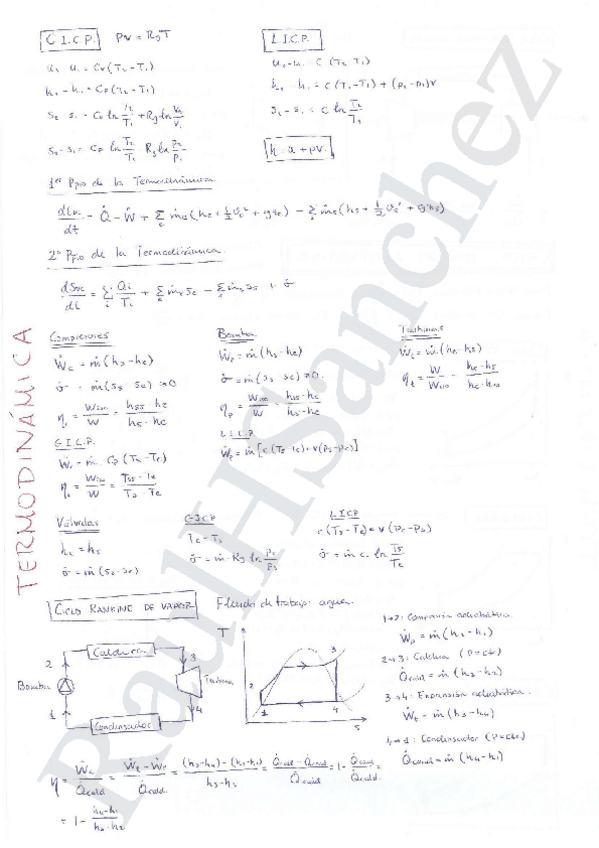 G.I.C.P. pv = RgT
u2 - u1 = Cv(T2 - T1)
h2 - h1 = Cp(T2 - T1)
s2 - s1 = Cv ln T2/T1 + Rg ln V2/V1
s2 - s1 = Cp ln T2/T1 Rg ln P2/P1
L.I.C.P.
u2 - u1 = C (T2 - T1)
h2 - h1 = C(T2 - T1) + (p2 - p1)v
s2 - s1 = C ln T2/T1
h = u + pv.
1er Ppio de la Termodinámica
= Q̇ - Ẇ + Σ ṁe(he + 1/2 ve² + gze) - Σ ṁs(hs + 1/2 vs² +
2º Ppio de la Termodinámica
= Σ Q̇i/Ti + Σ ṁe se - Σ ṁs ss + σ̇
TERMODINÁMICA
Compresores
Ẇc = ṁ(hs - he)
σ̇ = ṁ(ss se) ≥ 0
ηc = Wiso/W = hss - he/hs - he
G.I.C.P.
Cp (Ts - Te)
ηc = Wiso/W = Tss - Te/Ts - Te
Bomba
Ẇp = ṁ(hs - he)
σ̇ = ṁ(ss se) ≥ 0.
ηp = Wiso/W = hss - hs/hs - he
L.I.C.P
Ẇp = ṁ[c(Ts - Te) + v(ps - pe)]
Turbinas
Ẇt = ṁ(he - hs)
ηt = W/Wiso = he - hs/he - hss
Válvulas
he = hs
σ̇ = ṁ(ss - se)
G.I.C.P
Te = Ts
σ̇ = ṁ · Rg ln pe/ps
L.I.C.P
c(Ts - Te) = v(pe - ps)
σ̇ = ṁ c. ln Ts/Te
CICLO RANKINE DE VAPOR Fluido de trabajo: agua.
Caldera
Bomba
Turbina
Condensador
1
2
3
4
T
s
1
2
3
4
1→2: Compresión adiabática.
Ẇp = ṁ(h2 - h1)
2→3: Caldera (P=cte)
Q̇cald = ṁ(h3 - h2)
3→4: Expansión adiabática.
Ẇt = ṁ(h3 - h4)
4→1: Condensador (P=cte)
Q̇cond = ṁ(h4 - h1)
η = Ẇn/Q̇cald = Ẇt - Ẇp/Q̇cald = (h3 - h4) - (h2 - h1)/h3 - h2 = Q̇cald - Q̇cond/Q̇cald = 1 - Q̇cond/Q̇cald =
= 1 - h4 - h1/h3 - h2
RaulHSanchez